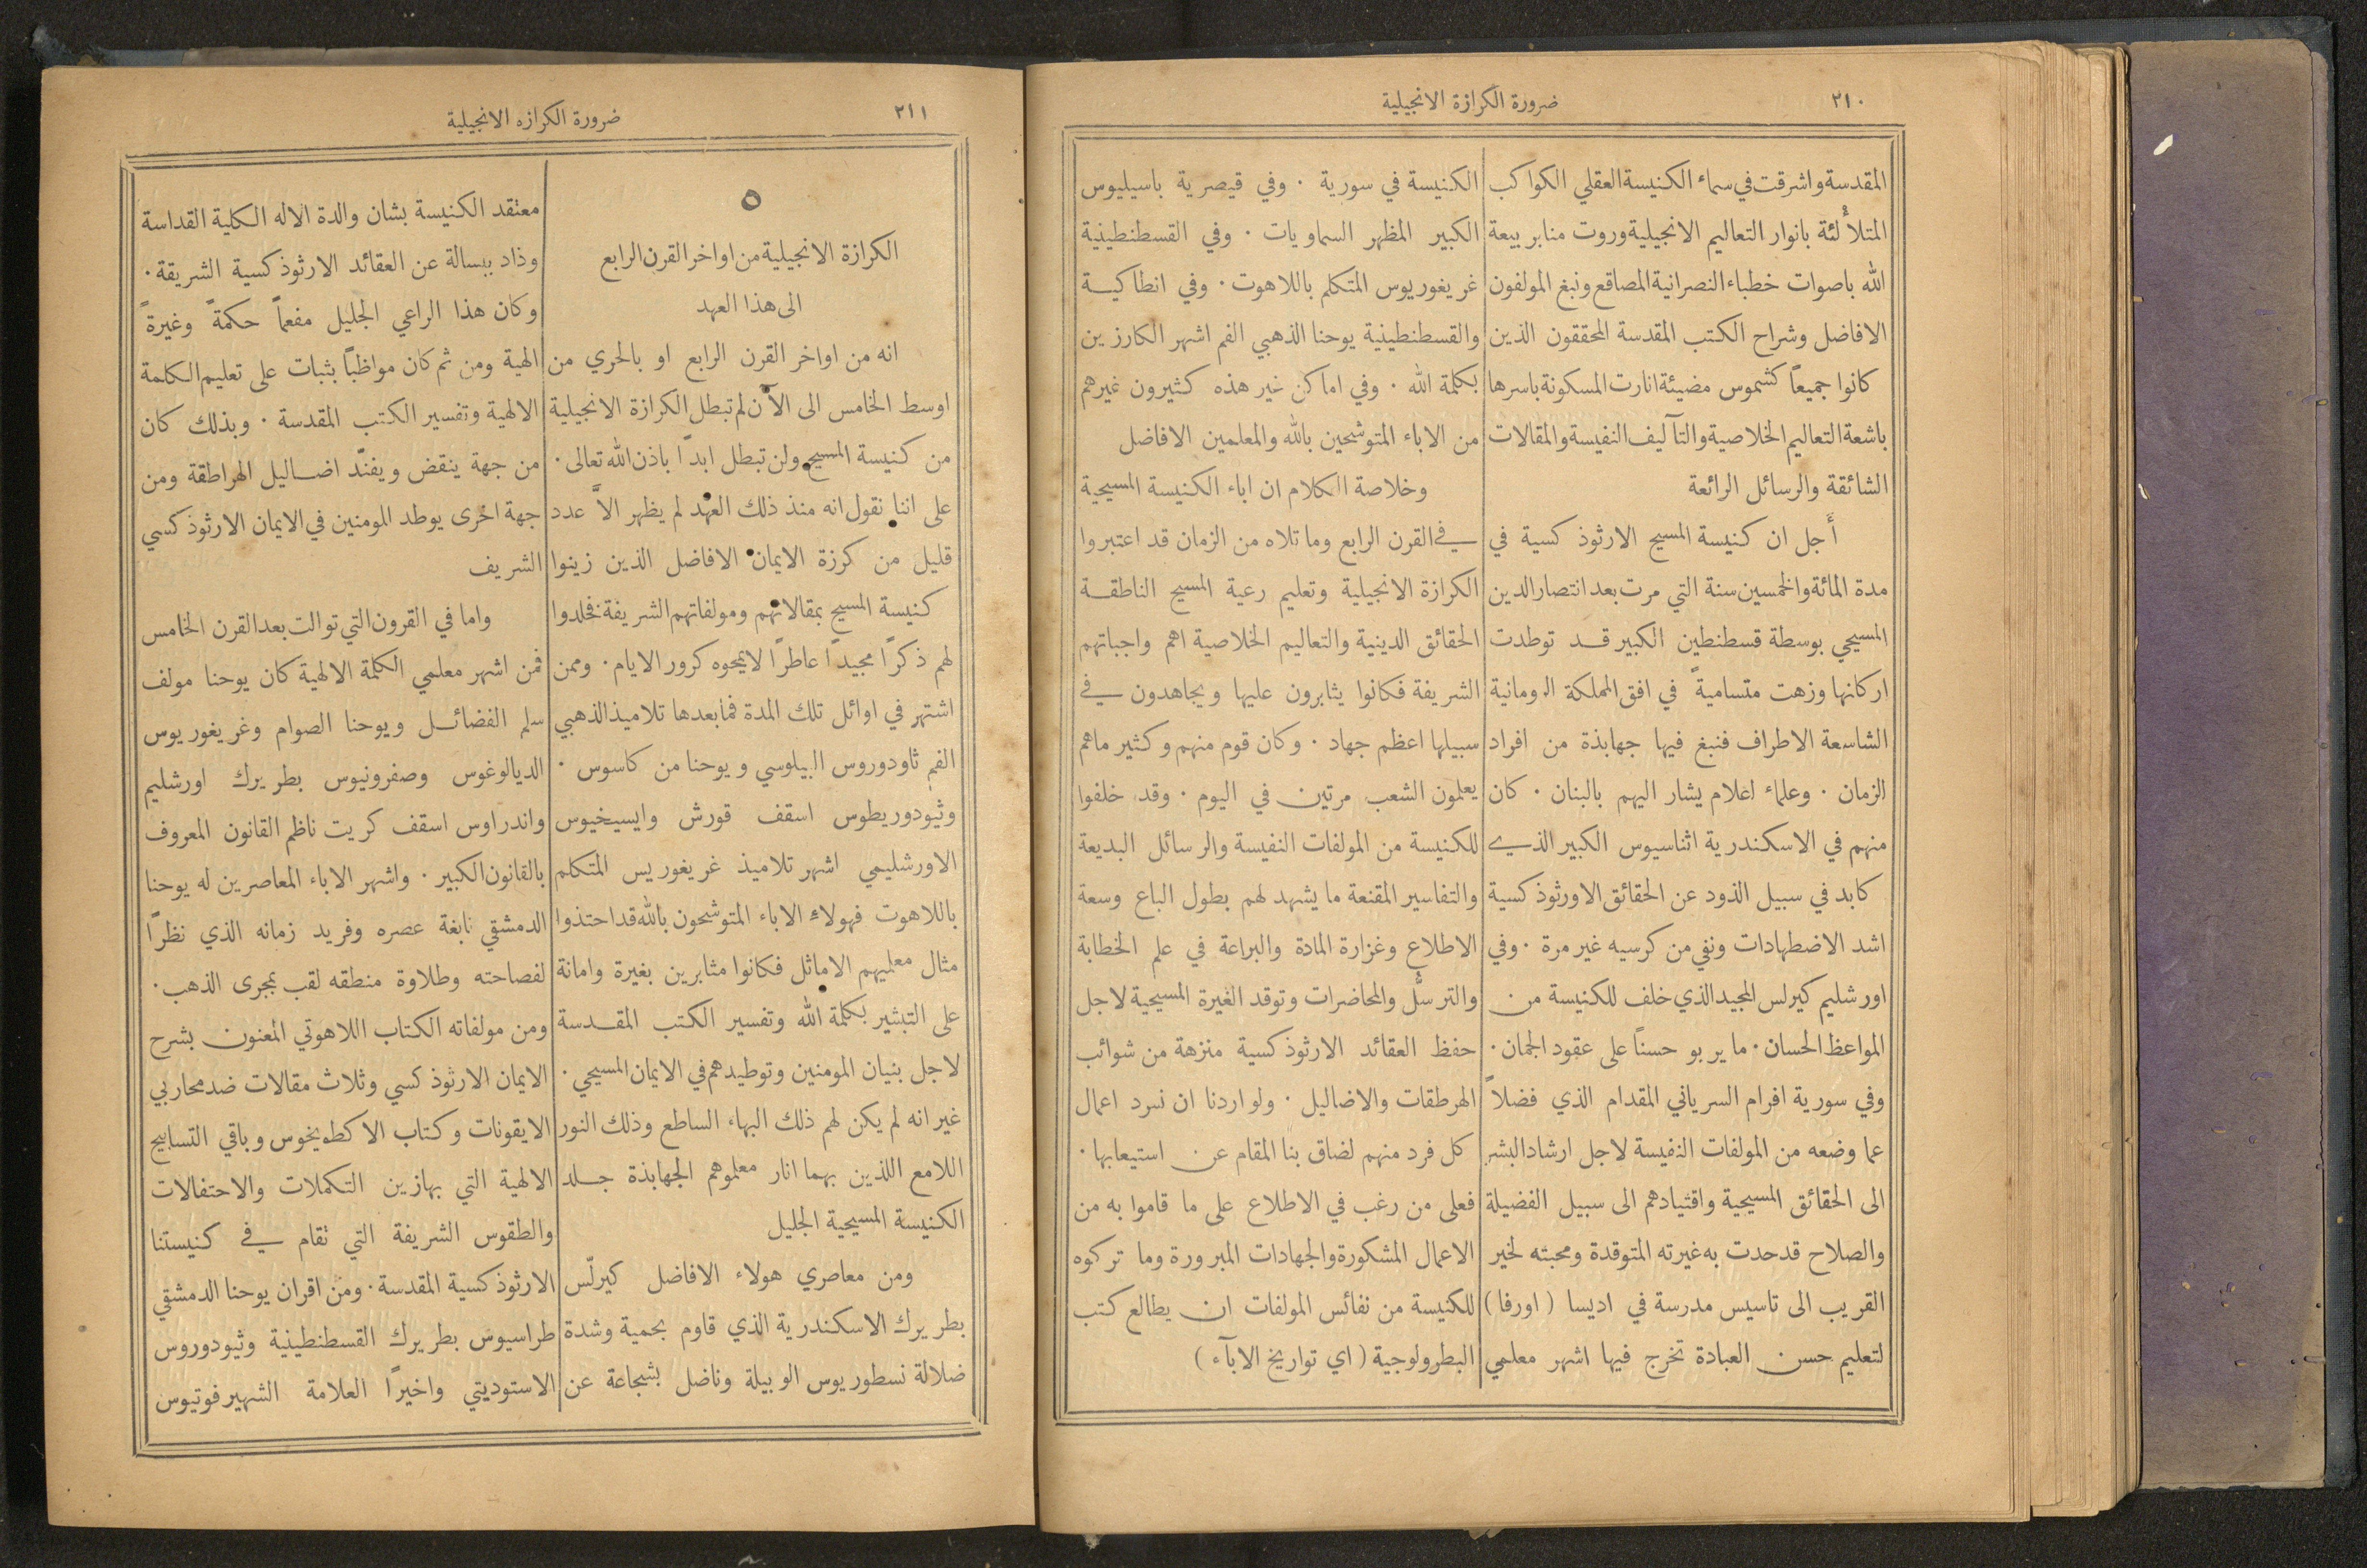 ٢١٠
ضرورة الكرازة الانجيلية
المقدسة واشرقت في سماء الكنيسة العقلي الكواكب
المتلأْلئة بانوار التعاليم الانجيلية وروت منابر بيعة
الله باصوات خطباء النصرانية المصاقع ونبغ المولفون
الافاضل وشراح الكتب المقدسة المحققون الذين
كانوا جميعاً كشموس مضيئة انارت المسكونة باسرها
باشعة التعاليم الخلاصية والتآليف النفيسة والمقالات
الشائقة والرسائل الرائعة
أَجل ان كنيسة المسيح الارثوذكسية في
مدة المائة والخمسين سنة التي مرت بعد انتصار الدين
المسيحي بوسطة قسطنطين الكبير قد توطدت
اركانها وزهت متساميةً في افق المملكة الرومانية
الشاسعة الاطراف فنبغ فيها جهابذة من افراد
الزمان ٠ وعلماء اعلام يشار اليهم بالبنان ٠ كان
منهم في الاسكندرية اثناسيوس الكبير الذي
كابد في سبيل الذود عن الحقائق الاورثوذكسية
اشد الاضطهادات ونفي من كرسيه غير مرة ٠ وفي
اورشليم كيرلس المجيد الذي خلف للكنيسة من
المواعظ الحسان ٠ ما يربو حسناً على عقود الجمان ٠
وفي سورية افرام السرياني المقدام الذي فضلاً
عما وضعه من المولفات النفيسة لاجل ارشاد البشر
الى الحقائق المسيحية واقتيادهم الى سبيل الفضيلة
والصلاح قد حدت به غيرته المتوقدة ومحبته لخير
القريب الى تاسيس مدرسة في اديسا ( اورفا )
لتعليم حسن العبادة تخرج فيها اشهر معلمي
الكنيسة في سورية ٠ وفي قيصرية باسيليوس
الكبير المظهر السماويات ٠ وفي القسطنطينية
غريغوريوس المتكلم باللاهوت ٠ وفي انطاكية
والقسطنطينية يوحنا الذهبي الفم اشهر الكارزين
بكلمة الله ٠ وفي اماكن غير هذه كثيرون غيرهم
من الاباء المتوشحين بالله والمعلمين الافاضل
وخلاصة الكلام ان اباء الكنيسة المسيحية
في القرن الرابع وما تلاه من الزمان قد اعتبروا
الكرازة الانجيلية وتعليم رعية المسيح الناطقة
الحقائق الدينية والتعاليم الخلاصية اهم واجباتهم
الشريفة فكانوا يثابرون عليها ويجاهدون في
سبيلها اعظم جهاد ٠ وكان قوم منهم وكثير ماهم
يعلمون الشعب مرتين في اليوم ٠ وقد خلفوا
للكنيسة من المولفات النفيسة والرسائل البديعة
والتفاسير المقنعة ما يشهد لهم بطول الباع وسعة
الاطلاع وغزارة المادة والبراعة في علم الخطابة
والترسُّل والمحاضرات وتوقد الغيرة المسيحية لاجل
حفظ العقائد الارثوذكسية منزهة من شوائب
الهرطقات والاضاليل ٠ ولو اردنا ان نسرد اعمال
كل فرد منهم لضاق بنا المقام عن استيعابها ٠
فعلى من رغب في الاطلاع على ما قاموا به من
الاعمال المشكورة والجهادات المبرورة وما تركوه
للكنيسة من نفائس المولفات ان يطالع كتب
البطرولوجية ( اي تواريخ الابآء )
٢١١
ضرورة الكرازه الانجيلية
٥
الكرازة الانجيلية من اواخر القرن الرابع
الى هذا العهد
انه من اواخر القرن الرابع او بالحري من
اوسط الخامس الى الآن لم تبطل الكرازة الانجيلية
من كنيسة المسيح ولن تبطل ابداً باذن الله تعالى ٠
على اننا نقول انه منذ ذلك العهد لم يظهر الاَّ عدد
قليل من كرزة الايمان الافاضل الذين زينوا
كنيسة المسيح بمقالاتهم ومولفاتهم الشريفة فخلدوا
لهم ذكراً مجيداً عاطراً لا يمحوه كرور الايام ٠ وممن
اشتهر في اوائل تلك المدة فما بعدها تلاميذ الذهبي
الفم ثاودوروس البيلوسي ويوحنا من كاسوس ٠
وثيودوريطوس اسقف قورش وايسيخيوس
الاورشليمي اشهر تلاميذ غريغوريس المتكلم
باللاهوت فهولاء الاباء المتوشحون بالله قد احتذوا
مثال معلميهم الاماثل فكانوا مثابرين بغيرة وامانة
على التبشير بكلمة الله وتفسير الكتب المقدسة
لاجل بنيان المومنين وتوطيدهم في الايمان المسيحي ٠
غير انه لم يكن لهم ذلك البهاء الساطع وذلك النور
اللامع اللذين بهما انار معلموهم الجهابذة جلد
الكنيسة المسيحية الجليل
ومن معاصري هولاء الافاضل كيرلّس
بطريرك الاسكندرية الذي قاوم بحمية وشدة
ضلالة نسطوريوس الوبيلة وناضل بشجاعة عن
معتقد الكنيسة بشان والدة الاله الكلية القداسة
وذاد ببسالة عن العقائد الارثوذكسية الشريقة ٠
وكان هذا الراعي الجليل مفعماً حكمةً وغيرةً
الهية ومن ثم كان مواظباً بثبات على تعليم الكلمة
الالهية وتفسير الكتب المقدسة ٠ وبذلك كان
من جهة ينقض ويفنّد اضاليل الهراطقة ومن
جهة اخرى يوطد المومنين في الايمان الارثوذكسي
الشريف
واما في القرون التي توالت بعد القرن الخامس
فمن اشهر معلمي الكلمة الالهية كان يوحنا مولف
سلم الفضائل ويوحنا الصوام وغريغوريوس
الديالوغوس وصفرونيوس بطريرك اورشليم
واندراوس اسقف كريت ناظم القانون المعروف
بالقانون الكبير ٠ واشهر الاباء المعاصرين له يوحنا
الدمشقي نابغة عصره وفريد زمانه الذي نظراً
لفصاحته وطلاوة منطقه لقب بمجرى الذهب ٠
ومن مولفاته الكتاب اللاهوتي المعنون بشرح
الايمان الارثوذكسي وثلاث مقالات ضد محاربي
الايقونات وكتاب الاكطويخوس وباقي التسابيح
الالهية التي بهازين التكملات والاحتفالات
والطقوس الشريفة التي تقام في كنيستنا
الارثوذكسية المقدسة ٠ ومن اقران يوحنا الدمشقي
طراسيوس بطريرك القسطنطينية وثيودوروس
الاستوديتي واخيراً العلامة الشهير فوتيوس